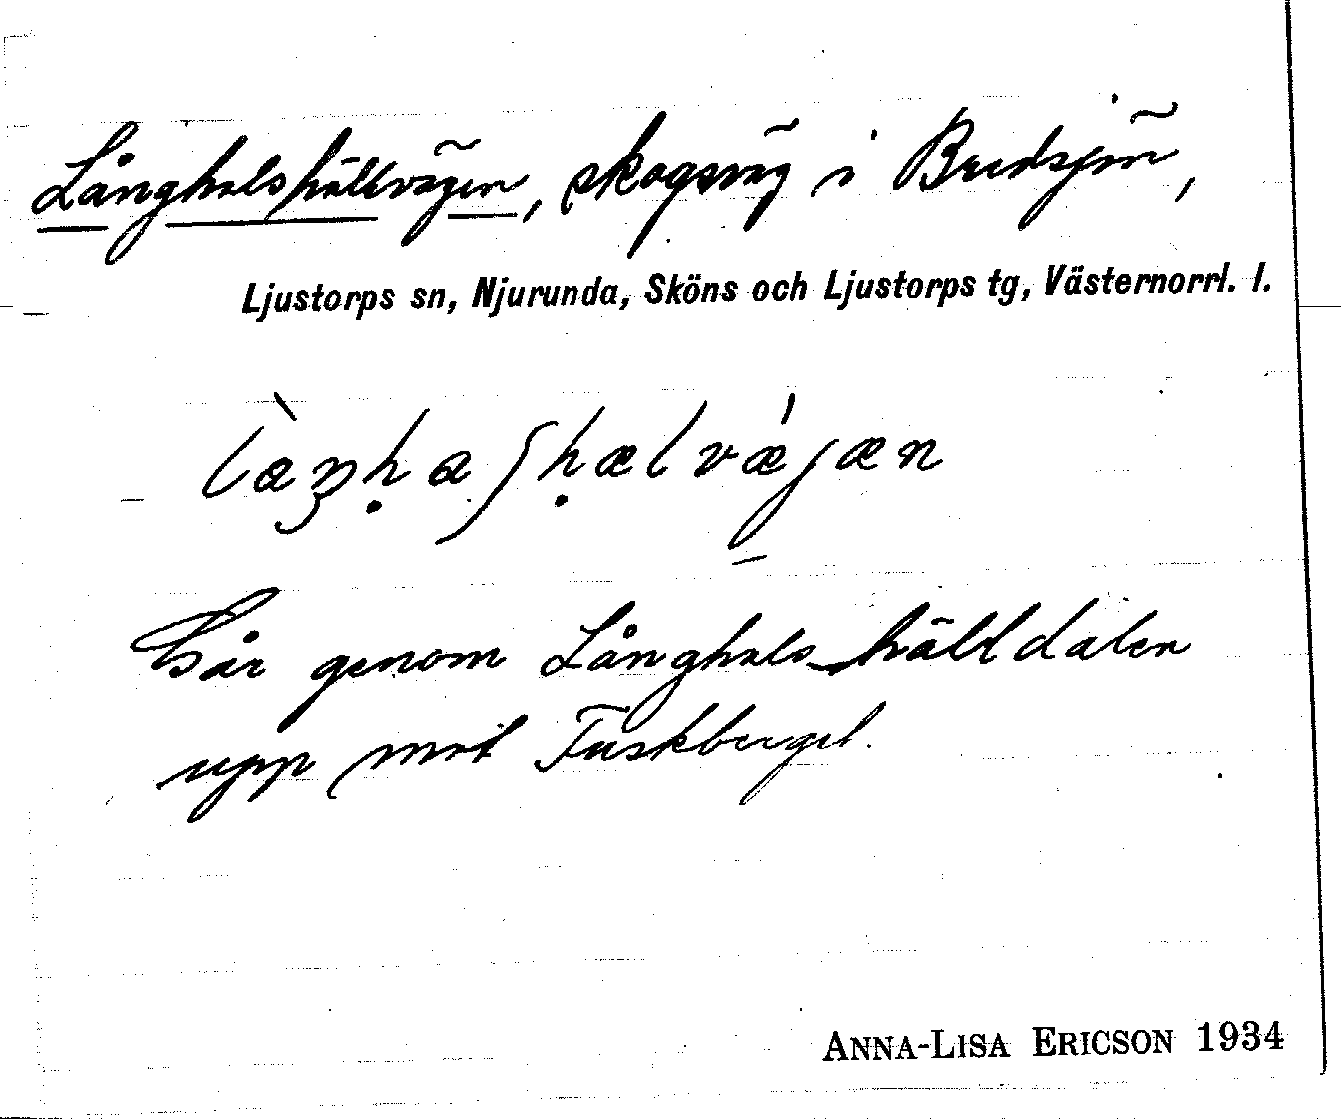 Långhalshällvägen, skogsväg i Bredsjön,
Ljustorps sn, Njurunda, Sköns och Ljustorps tg, Västernorrl. l.
Går genom Långhalshälldalen
upp mot Tuskberget.
ANNA-LISA ERICSON 1934